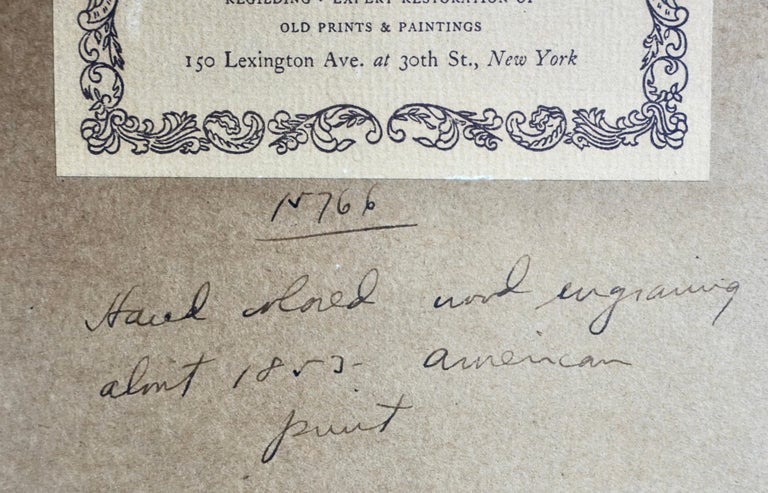 REGILDING · EXPERT RESTORATION OF
OLD PRINTS & PAINTINGS
150 Lexington Ave. at 30th St., New York
Hand colored wood engraving
about american
print